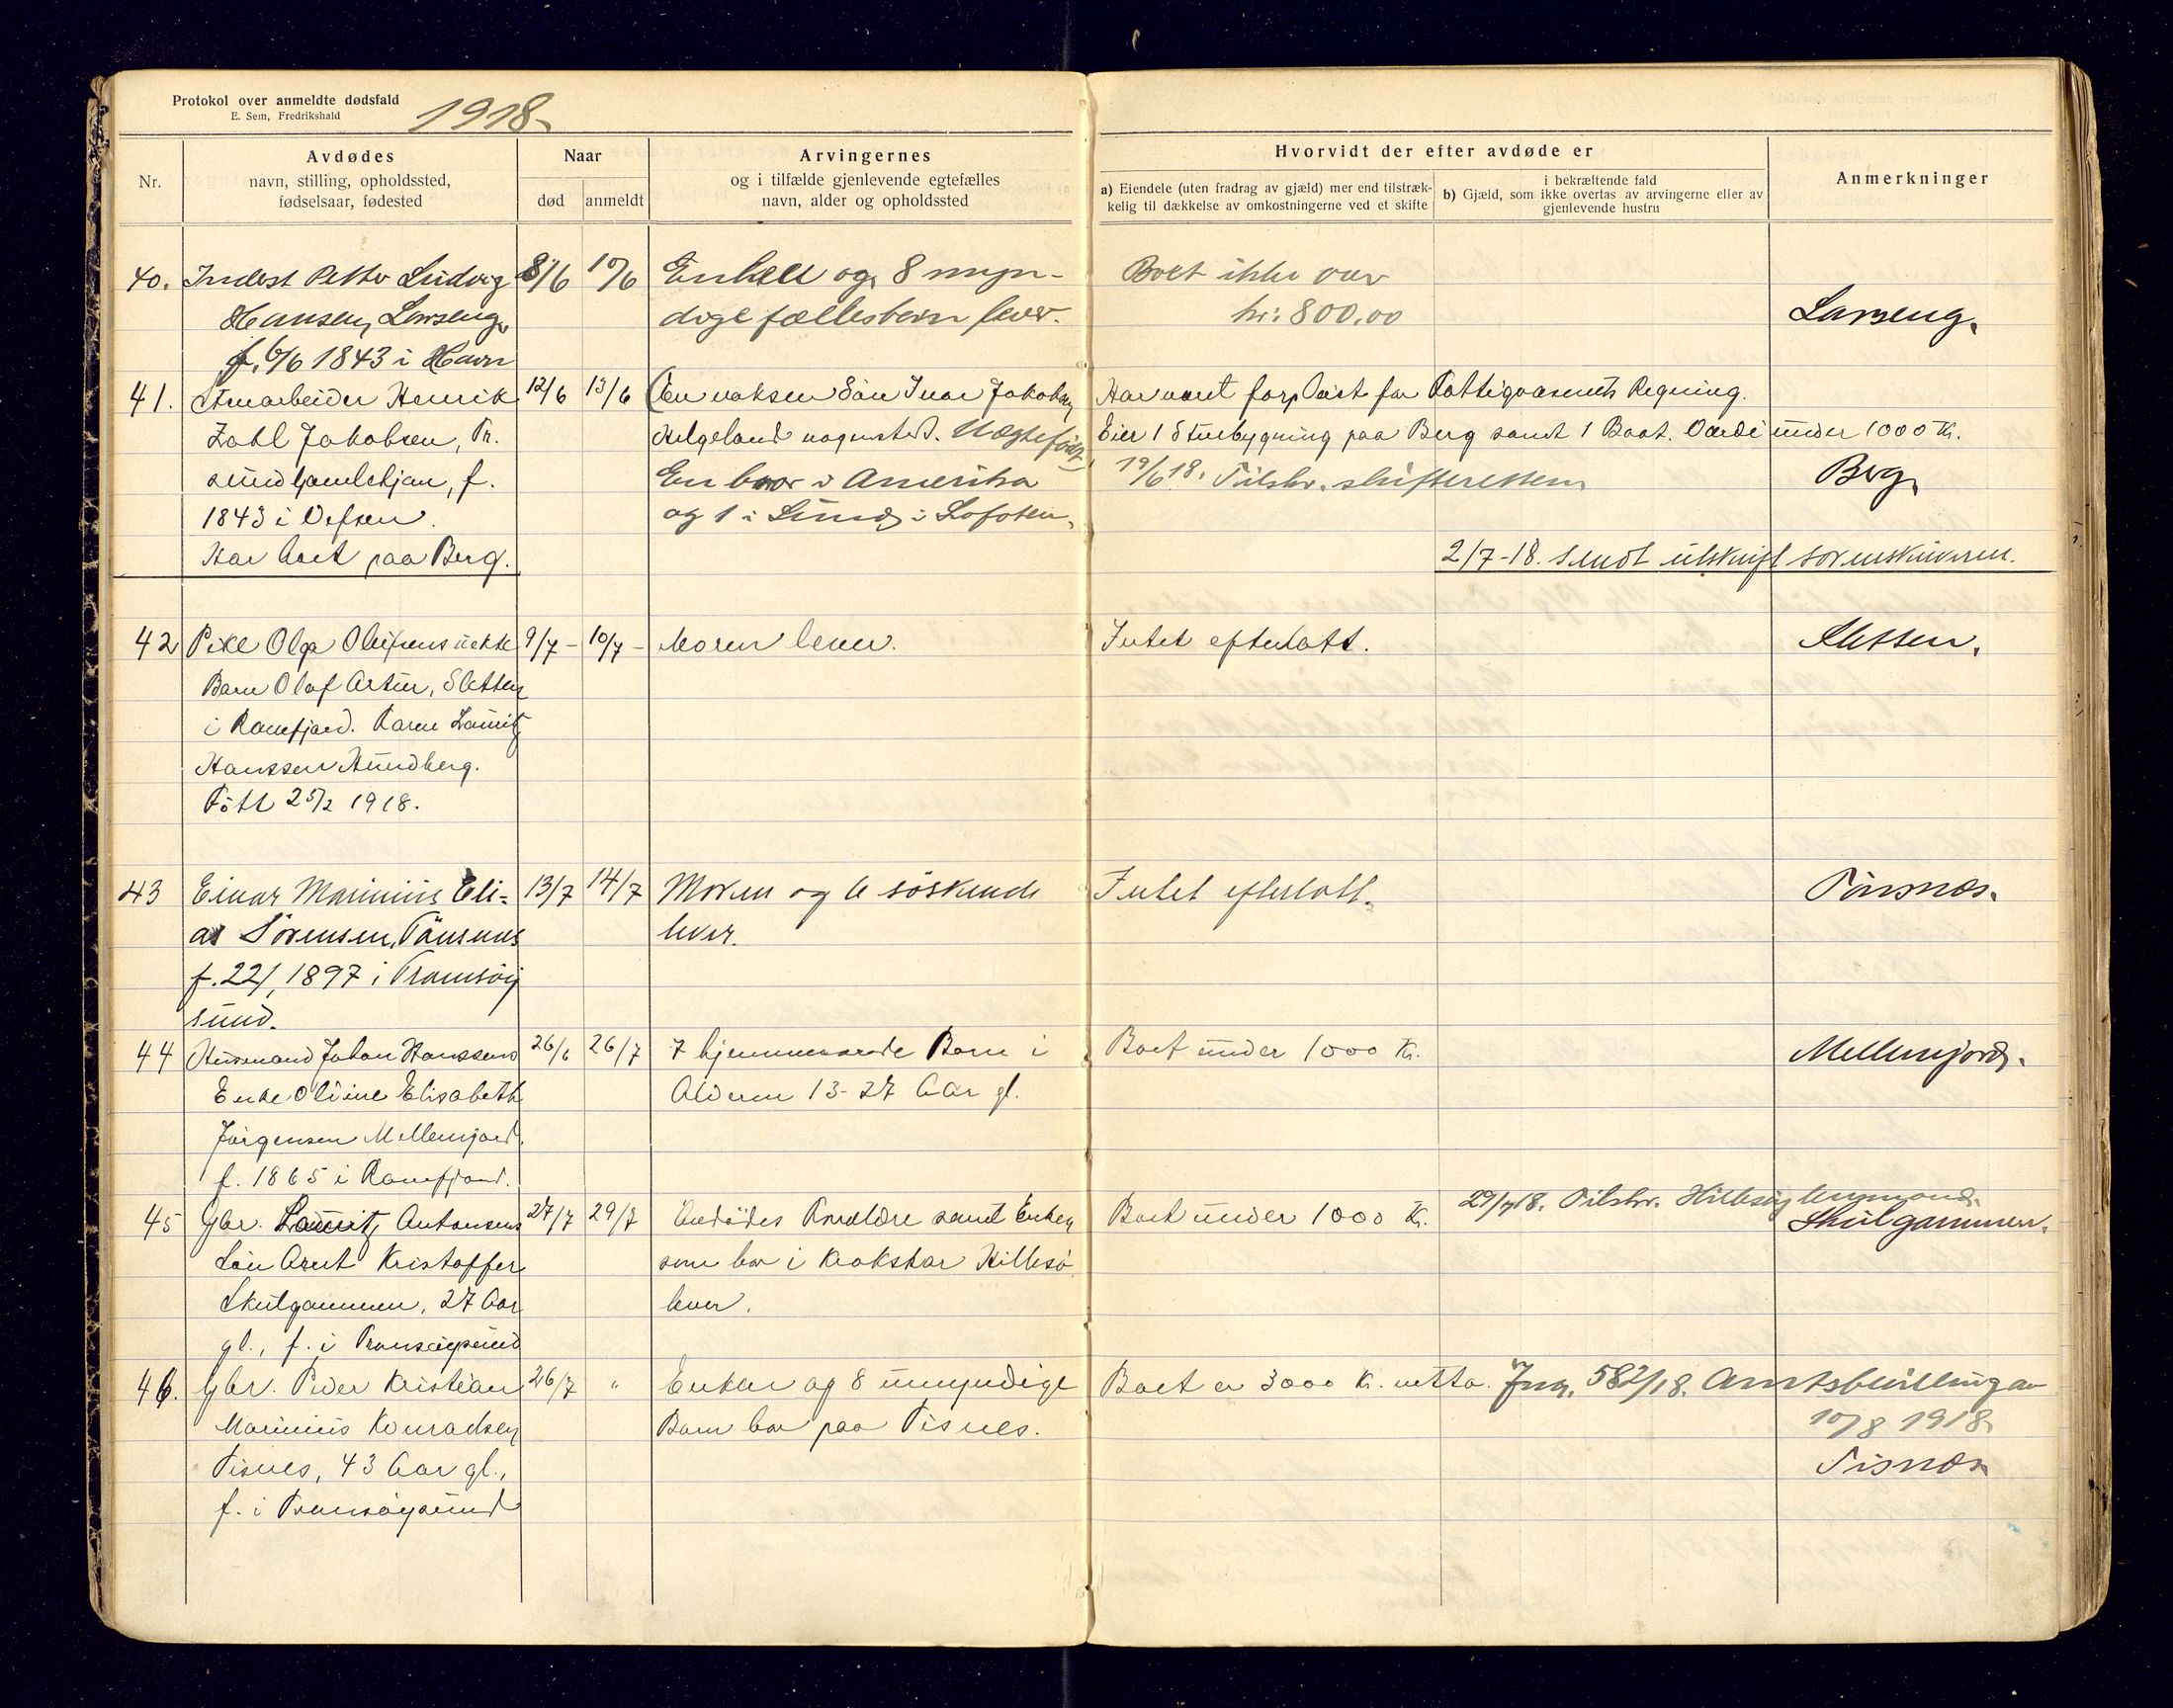 Protokol over anmeldte dødsfald
E. Sem, Fredrikshald
1918.
Nr.
Avdødes
navn, stilling, opholdssted,
fødselsaar, fødested
Naar
død
anmeldt
Arvingernes
og i tilfælde gjenlevende egtefælles
navn, alder og opholdssted
Hvorvidt der efter avdøde er
a) Eiendele (uten fradrag av gjæld) mer end tilstræk-
kelig til dækkelse av omkostningerne ved et skifte
i bekræftende fald
b) Gjæld, som ikke overtas av arvingerne eller av
gjenlevende hustru
Anmerkninger
40. Inderst Petter Ludvig 8/6 10/6 Enken og 8 myn-
Hansen, Larseng, dige fællesbørn lever.
f. 6/6 1843 i Havn
Boet ikke over
kr. 800,00
Larseng.
41. Henrik 12/6 13/6 En voksen Sön Ivar Jakobsen
Zahl Jakobsen, Tr. Helgeland uægtefödt
sund f. En bror i Amerika
1843 i Vefsen. og 1 i Sund i Lofoten.
Har boet paa Berg.
Har været forpleiet for Fattigvæsenets Regning.
Eier 1 Stuebygning paa Berg samt 1 Baat. Værdi under 1000 Kr.
19/6 18. Tilskr. skifteretten
Berg
2/7-18. sendt utskrift sorenskriveren.
42 Pike Olga Olufsens uekte 9/7 - 10/7 - Moren lever.
Barn Olaf Artur, Sletten
i Ramfjord. Faren Lauritz
Hanssen Hundberg.
Födt 25/2 1918.
Intet efterlatt.
Sletten.
43 Einar Marinius Eli= 13/7 14/7 Moren og 6 söskende
as Sörensen, Tönsnes lever.
f. 22/, 1897 i Tromsöy
sund.
Intet efterlatt.
Tönsnes.
44 Husmand Johan Hanssens 26/6 26/7 7 hjemmeværende Barn i
Enke Oline Elisabeth Alderen 13-27 Aar gl.
Jörgensen Mellemjord.
f. 1865 i Ramfjord.
Boet under 1000 Kr.
Mellemjord.
45 Gbr. Lauritz Antonsens 27/7 29/7 Avdödes Forældre samt Enken
Sön Arnt Kristoffer som bor i Krokskar Hillesö
Skulgammen, 27 Aar lever.
gl., f. i Tromsöysund
Boet under 1000 Kr.
29/7 18. Tilskr. Hillesöy lensmand.
Skulgammen.
46. Gbr. Peder Kristian 26/7 " Enken og 8 umyndige
Marinius Konradsen Barn bor paa Tisnes.
Tisnes, 43 Aar gl.,
f. i Tromsöysund
Boet er 3000 Kr. netto. Jnr. 582/18. Amtsbevilling av
10/8 1918
Tisnes